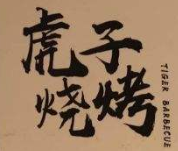 虎子
烧烤
TIGER BARBECUE